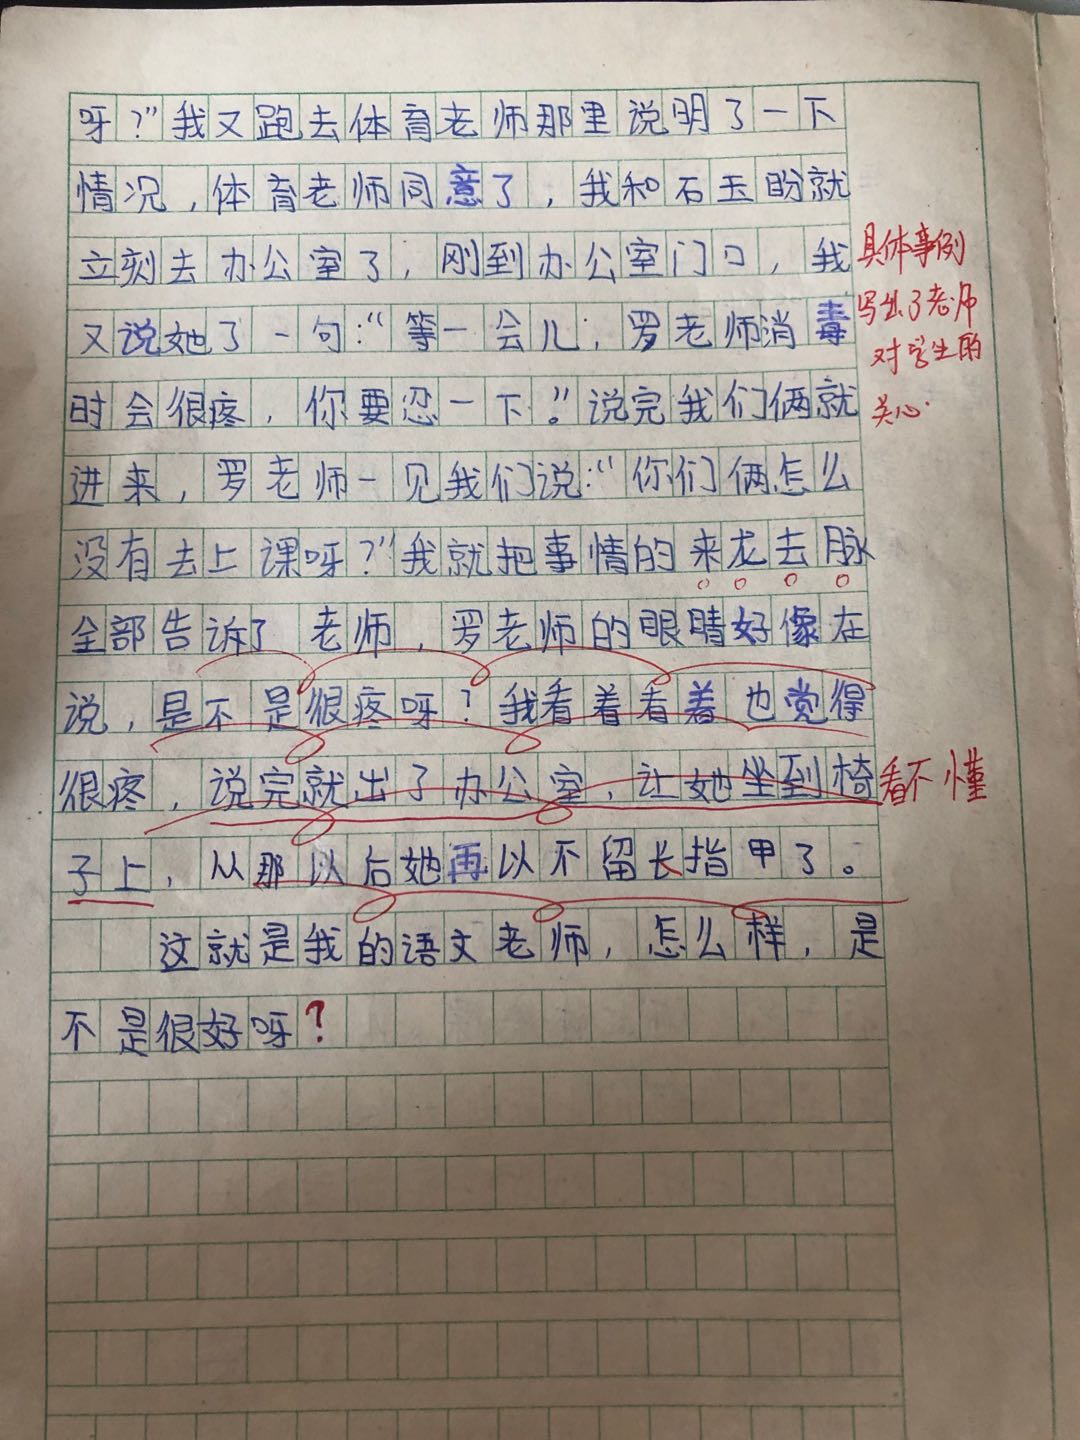 呀？”我又跑去体育老师那里说明了一下
情况，体育老师同意了，我和石玉盼就
立刻去办公室了，刚到办公室门口，我
又说她了一句：“等一会儿，罗老师消毒
时会很疼，你要忍一下。”说完我们俩就
进来，罗老师一见我们说：“你们俩怎么
没有去上课呀？”我就把事情的来龙去脉
全部告诉了老师，罗老师的眼睛好像在
说，是不是很疼呀？我看着看着也觉得
很疼，说完就出了办公室，让她坐到椅
子上，从那以后她再以不留长指甲了。
这就是我的语文老师，怎么样，是
不是很好呀？
具体事例
写出了老师
对学生的
关心.
看不懂